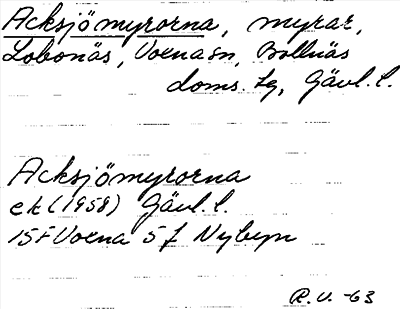 Acksjömyrorna, myrar,
Lobonäs, Voxna sn, Bollnäs
doms. lg, Gävl. l.
Acksjömyrorna
ek (1958) Gävl. l.
15F Voxna 5 f Nybyn
R.U. -63